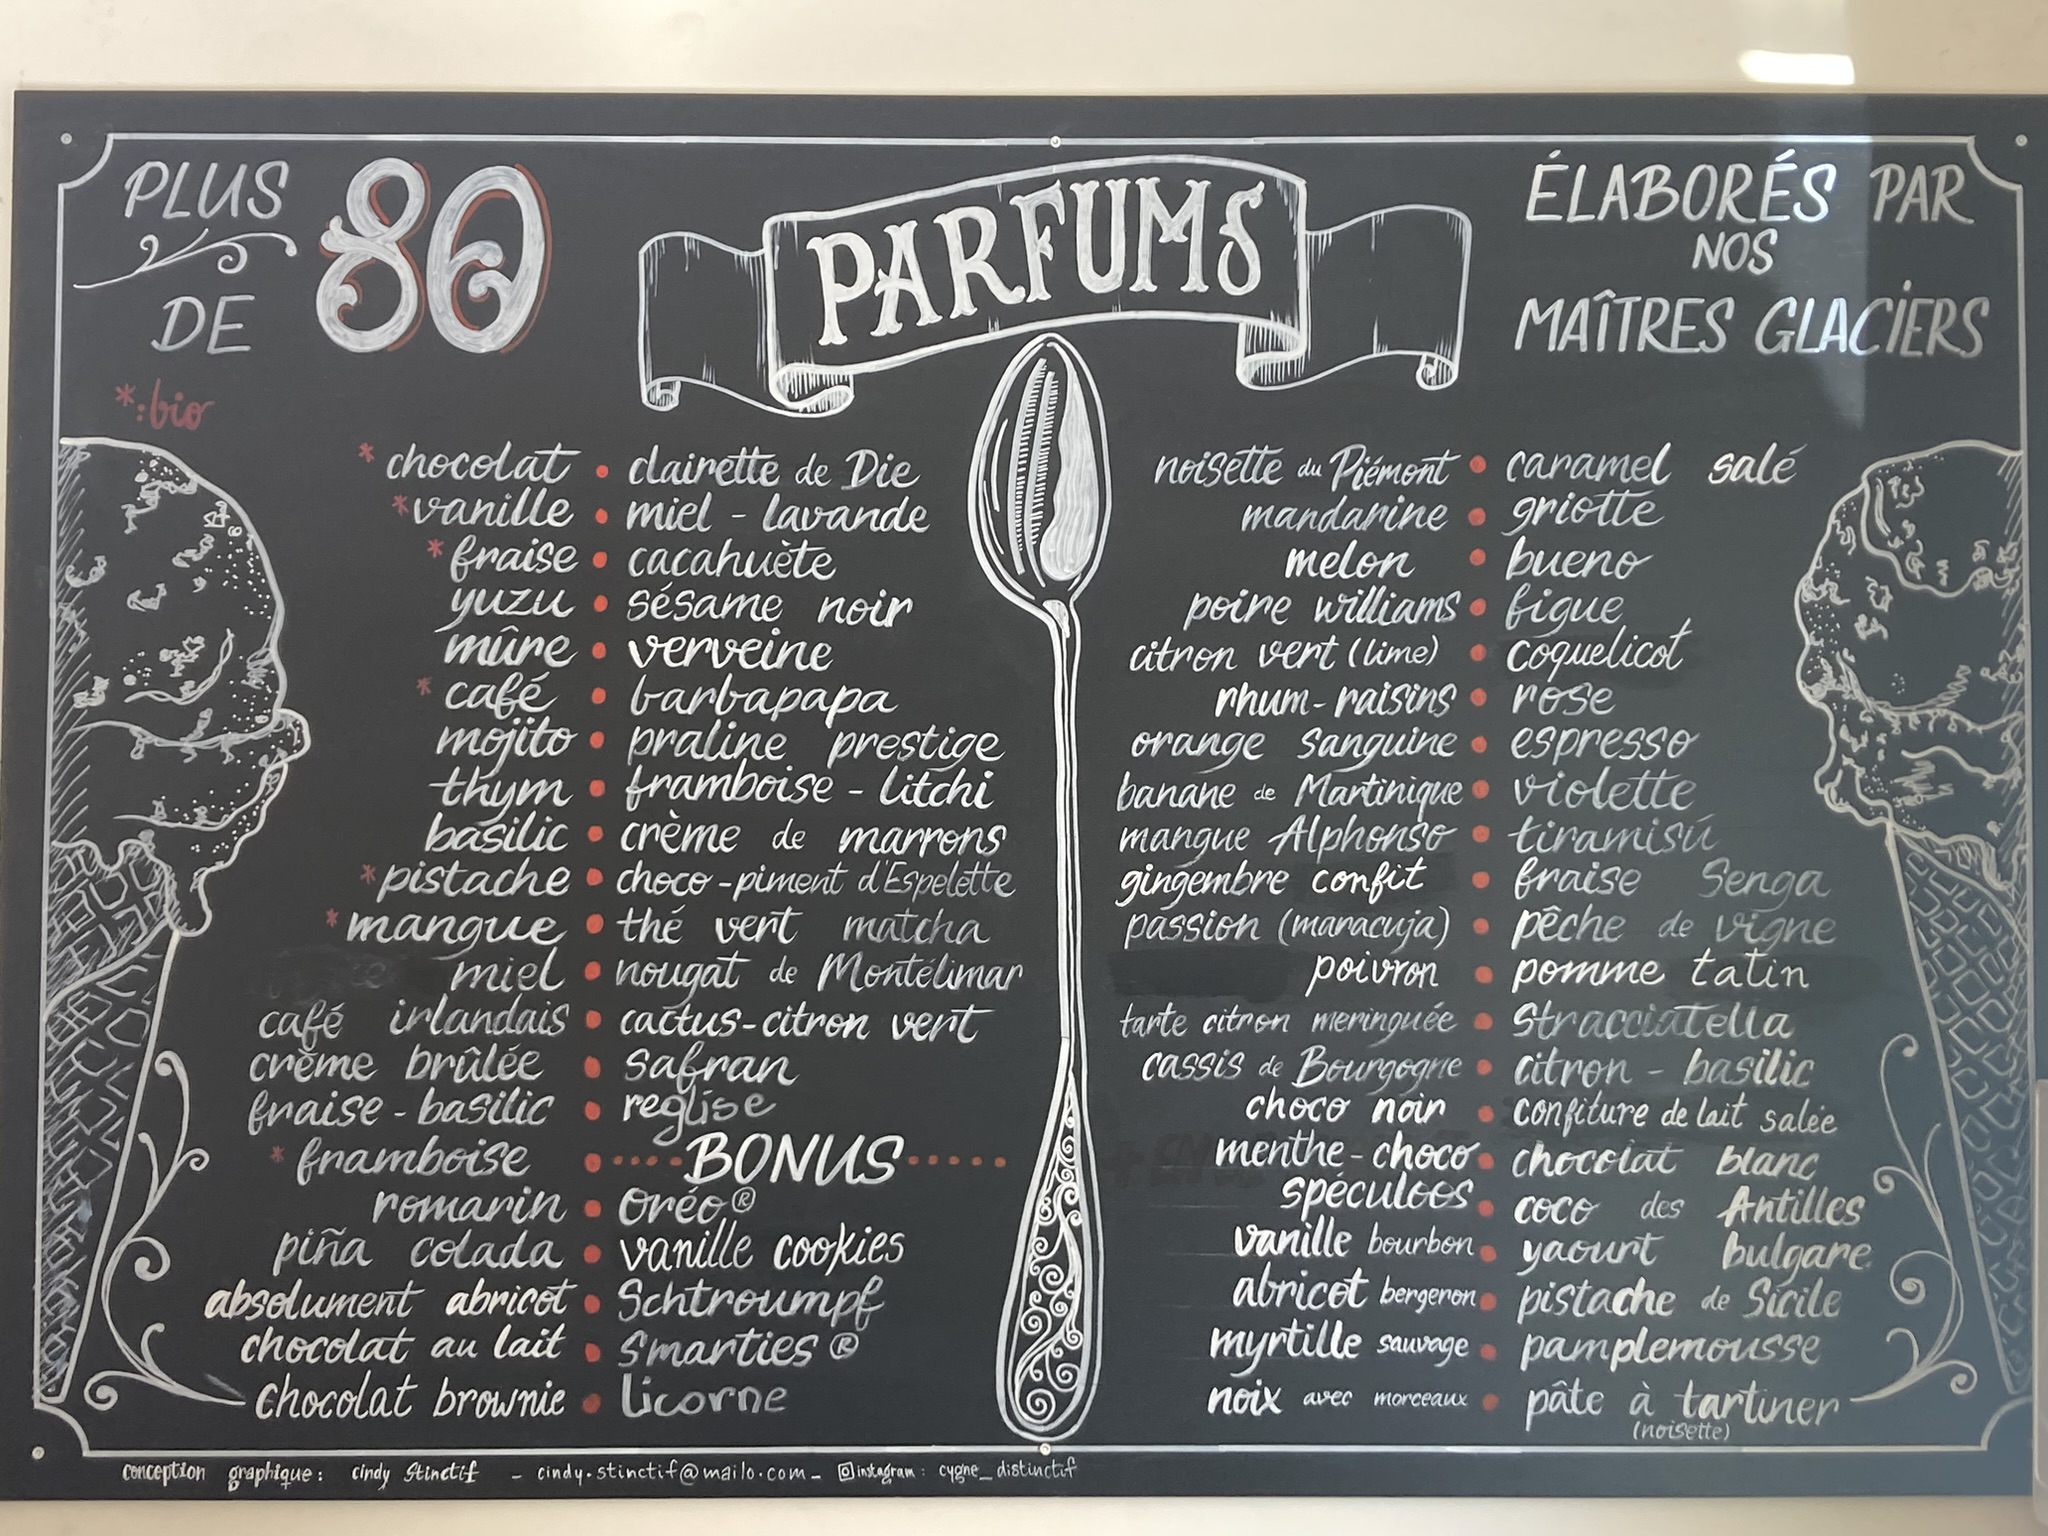 PLUS
DE
80
PARFUMS
ÉLABORÉS PAR
NOS
MAÎTRES GLACIERS
*:bio
*chocolat • clairette de Die
*vanille • miel - lavande
*fraise • cacahuète
yuzu • sésame noir
mûre • verveine
*café • barbapapa
mojito • praline prestige
thym • framboise - litchi
basilic • crème de marrons
*pistache • choco-piment d'Espelette
*mangue • thé vert matcha
miel • nougat de Montélimar
café irlandais • cactus-citron vert
crème brûlée • safran
fraise-basilic • reglise
*framboise • ····BONUS·····
romarin • Oréo®
piña colada • vanille cookies
absolument abricot • Schtroumpf
chocolat au lait • Smarties®
chocolat brownie • Licorne
noisette du Piémont • caramel salé
mandarine • griotte
melon • bueno
poire williams • figue
citron vert (lime) • coquelicot
rhum-raisins • rose
orange sanguine • espresso
banane de Martinique • violette
mangue Alphonso • tiramisú
gingembre confit • fraise Senga
passion (maracuja) • pêche de vigne
poivron • pomme tatin
tarte citron meringuée • stracciatella
cassis de Bourgogne • citron - basilic
choco noir • confiture de lait salée
menthe-choco • chocolat blanc
spéculoos • coco des Antilles
vanille bourbon • yaourt bulgare
abricot bergeron • pistache de Sicile
myrtille sauvage • pamplemousse
noix avec morceaux • pâte à tartiner
(noisette)
conception graphique : cindy Stinctif - cindy.stinctif@mailo.com - instagram : cygne_distinctif